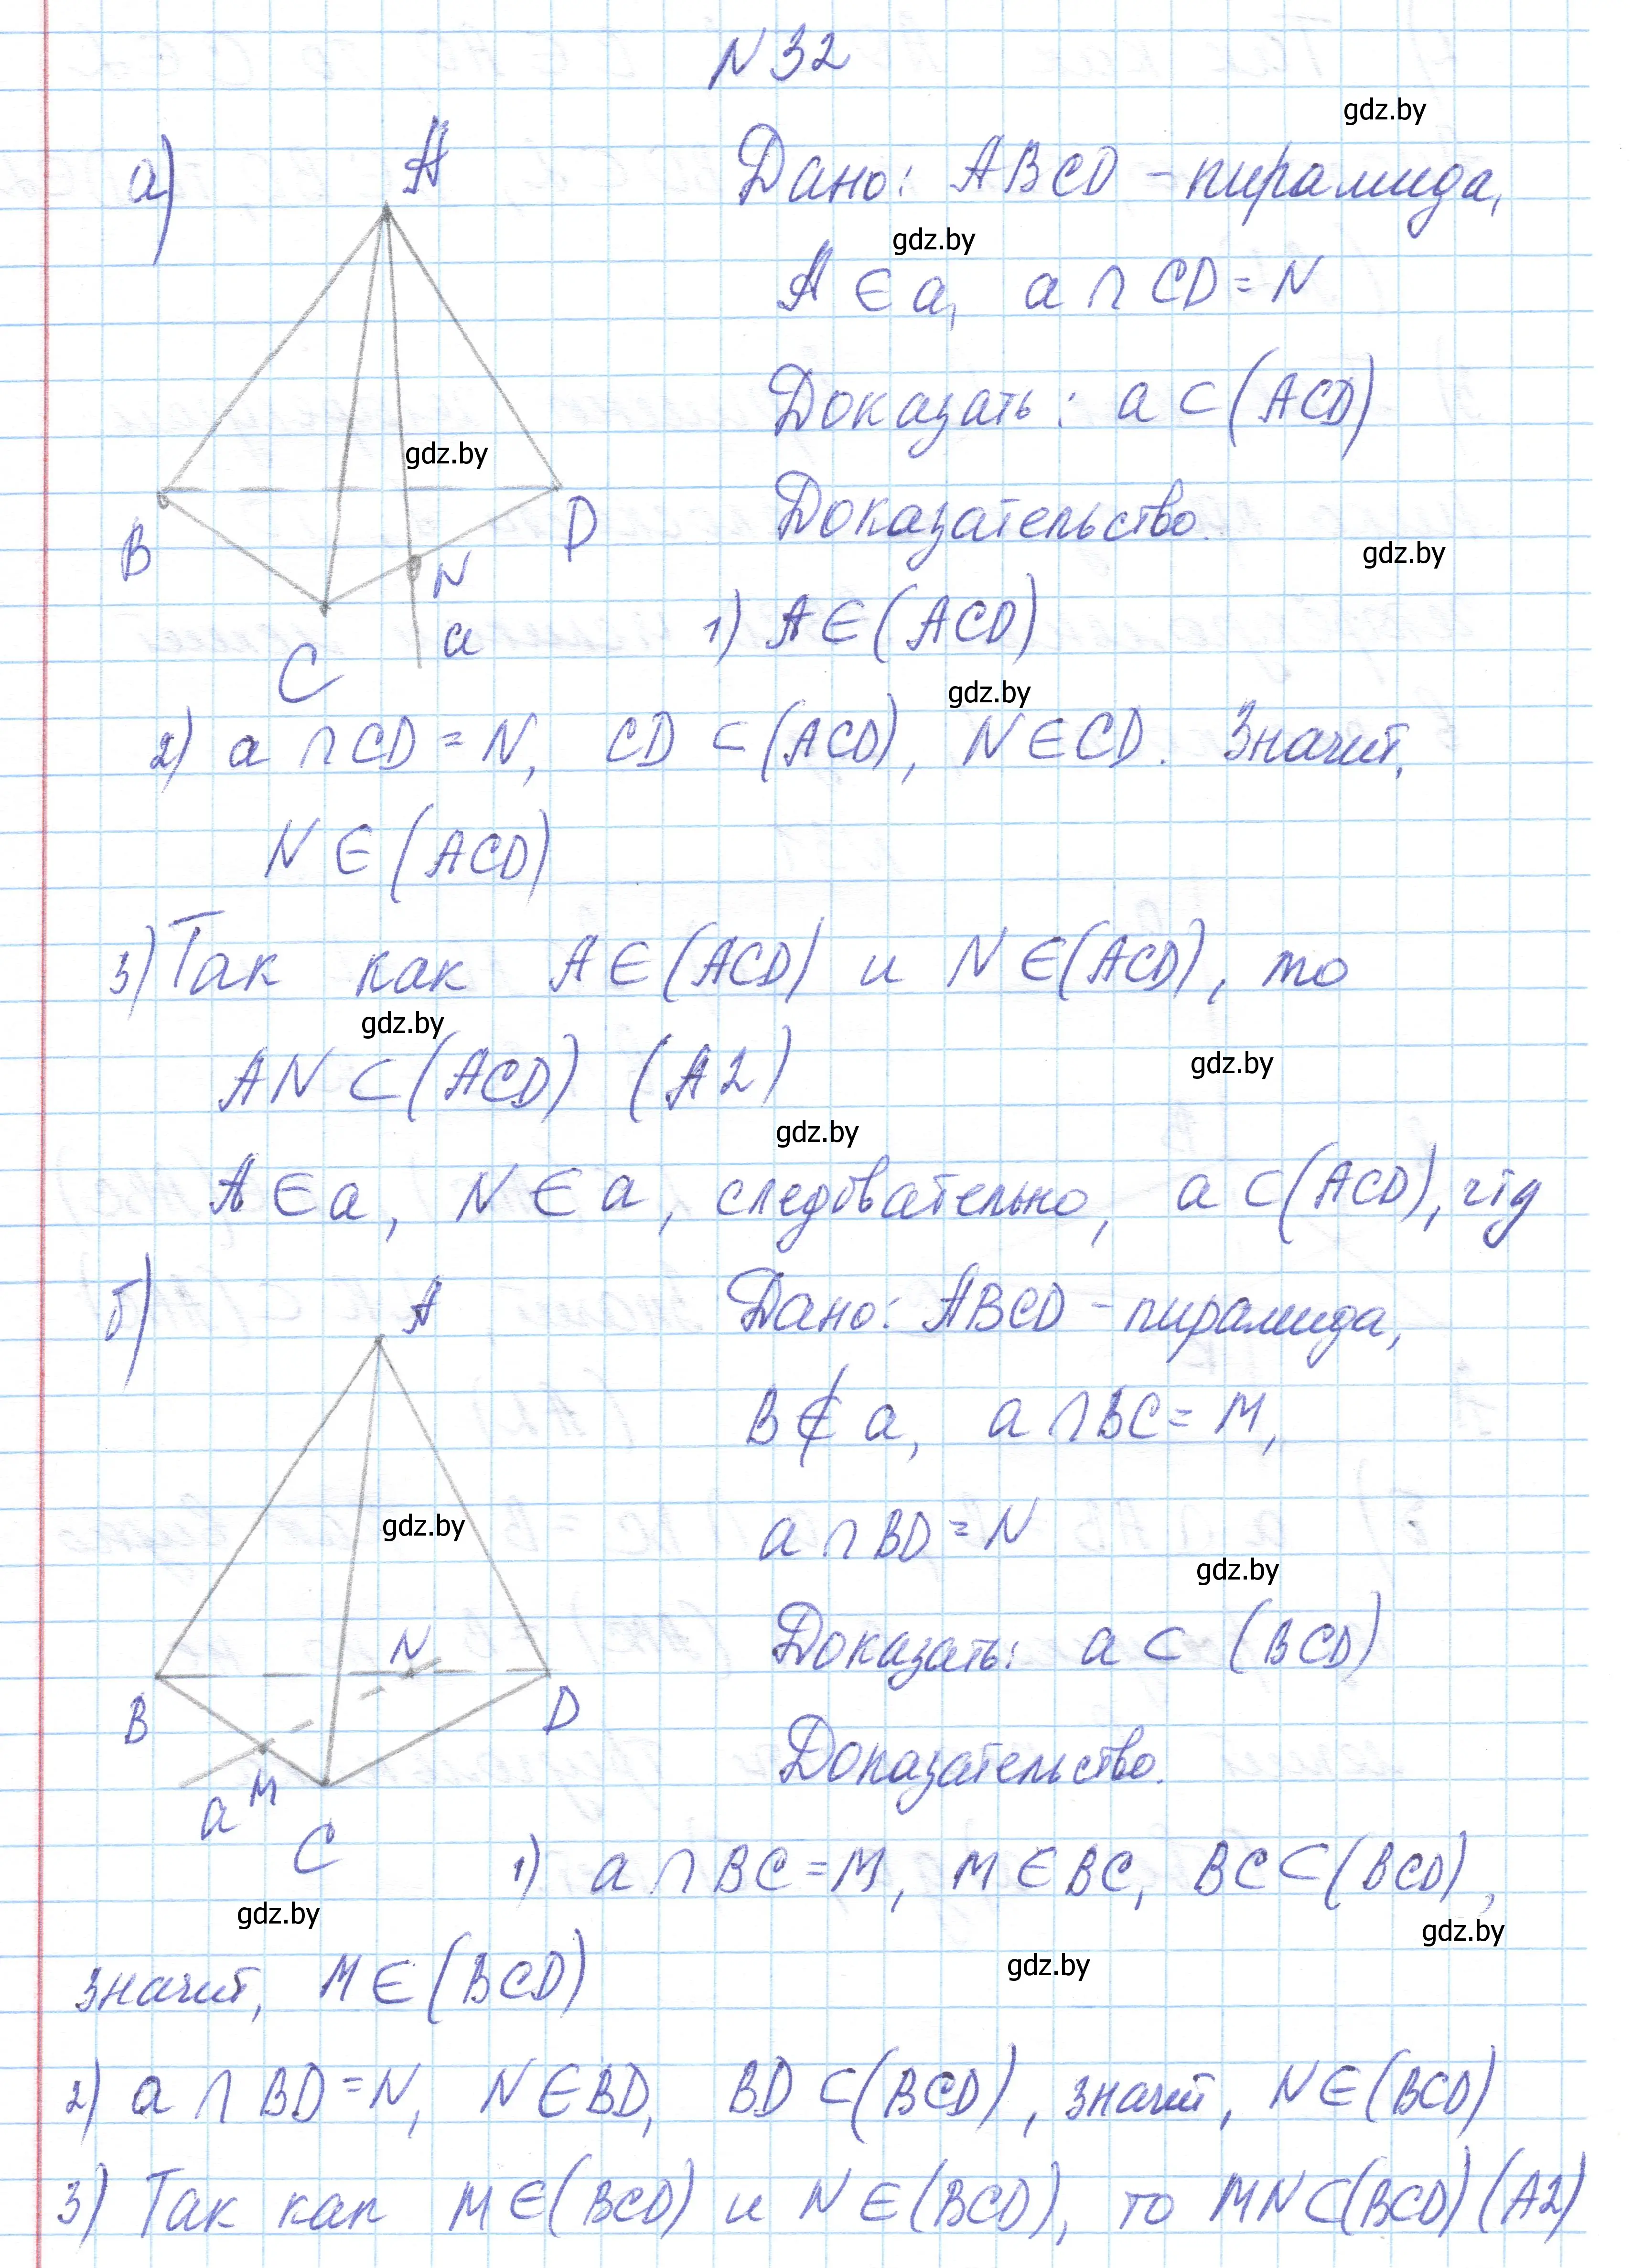 N 32
gdz.by
а)
A
Дано: ABCD - пирамида,
gdz.by
A ∈ a, a ∩ CD = N
Доказать: a ⊂ (ACD)
gdz.by
Доказательство.
B
D
gdz.by
N
a
C
1) A ∈ (ACD)
gdz.by
2) a ∩ CD = N, CD ⊂ (ACD), N ∈ CD. Значит,
N ∈ (ACD)
3) Так как A ∈ (ACD) и N ∈ (ACD), то
gdz.by
AN ⊂ (ACD) (A2)
gdz.by
gdz.by
A ∈ a, N ∈ a, следовательно, a ⊂ (ACD), чтд
б)
A
Дано: ABCD - пирамида,
B ∉ a, a ∩ BC = M,
gdz.by
a ∩ BD = N
gdz.by
Доказать: a ⊂ (BCD)
N
B
D
Доказательство.
a
M
C
1) a ∩ BC = M, M ∈ BC, BC ⊂ (BCD),
gdz.by
gdz.by
gdz.by
значит, M ∈ (BCD)
2) a ∩ BD = N, N ∈ BD, BD ⊂ (BCD), значит, N ∈ (BCD)
3) Так как M ∈ (BCD) и N ∈ (BCD), то MN ⊂ (BCD) (A2)